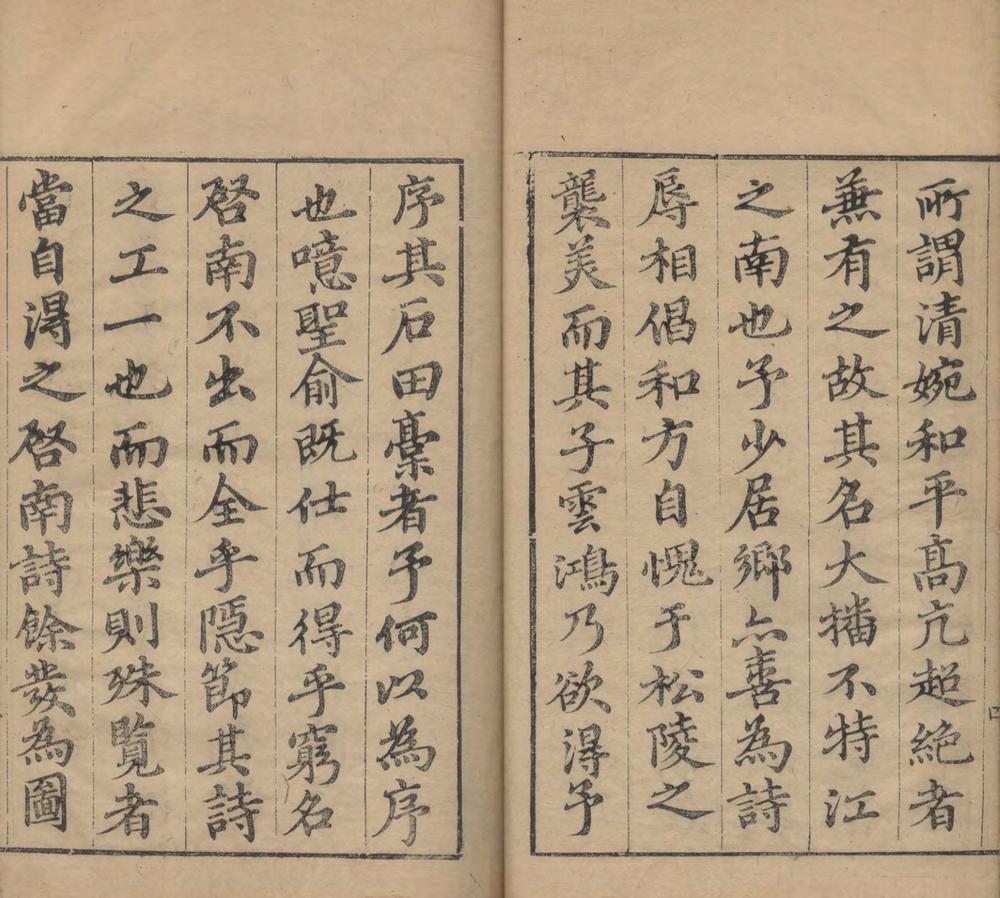 所謂清婉和平髙亢超絶者
蕪有之故其名大播不特江
之南也予少居鄉亦善為詩
辱相倡和方自愧于松陵之
襲美而其子雲鴻乃欲淂予
序其石田稾者予何以為序
也噫聖俞既仕而得乎窮名
啓南不出而全乎隠節其詩
之工一也而悲樂則殊覧者
當自淂之啓南詩餘發為圖